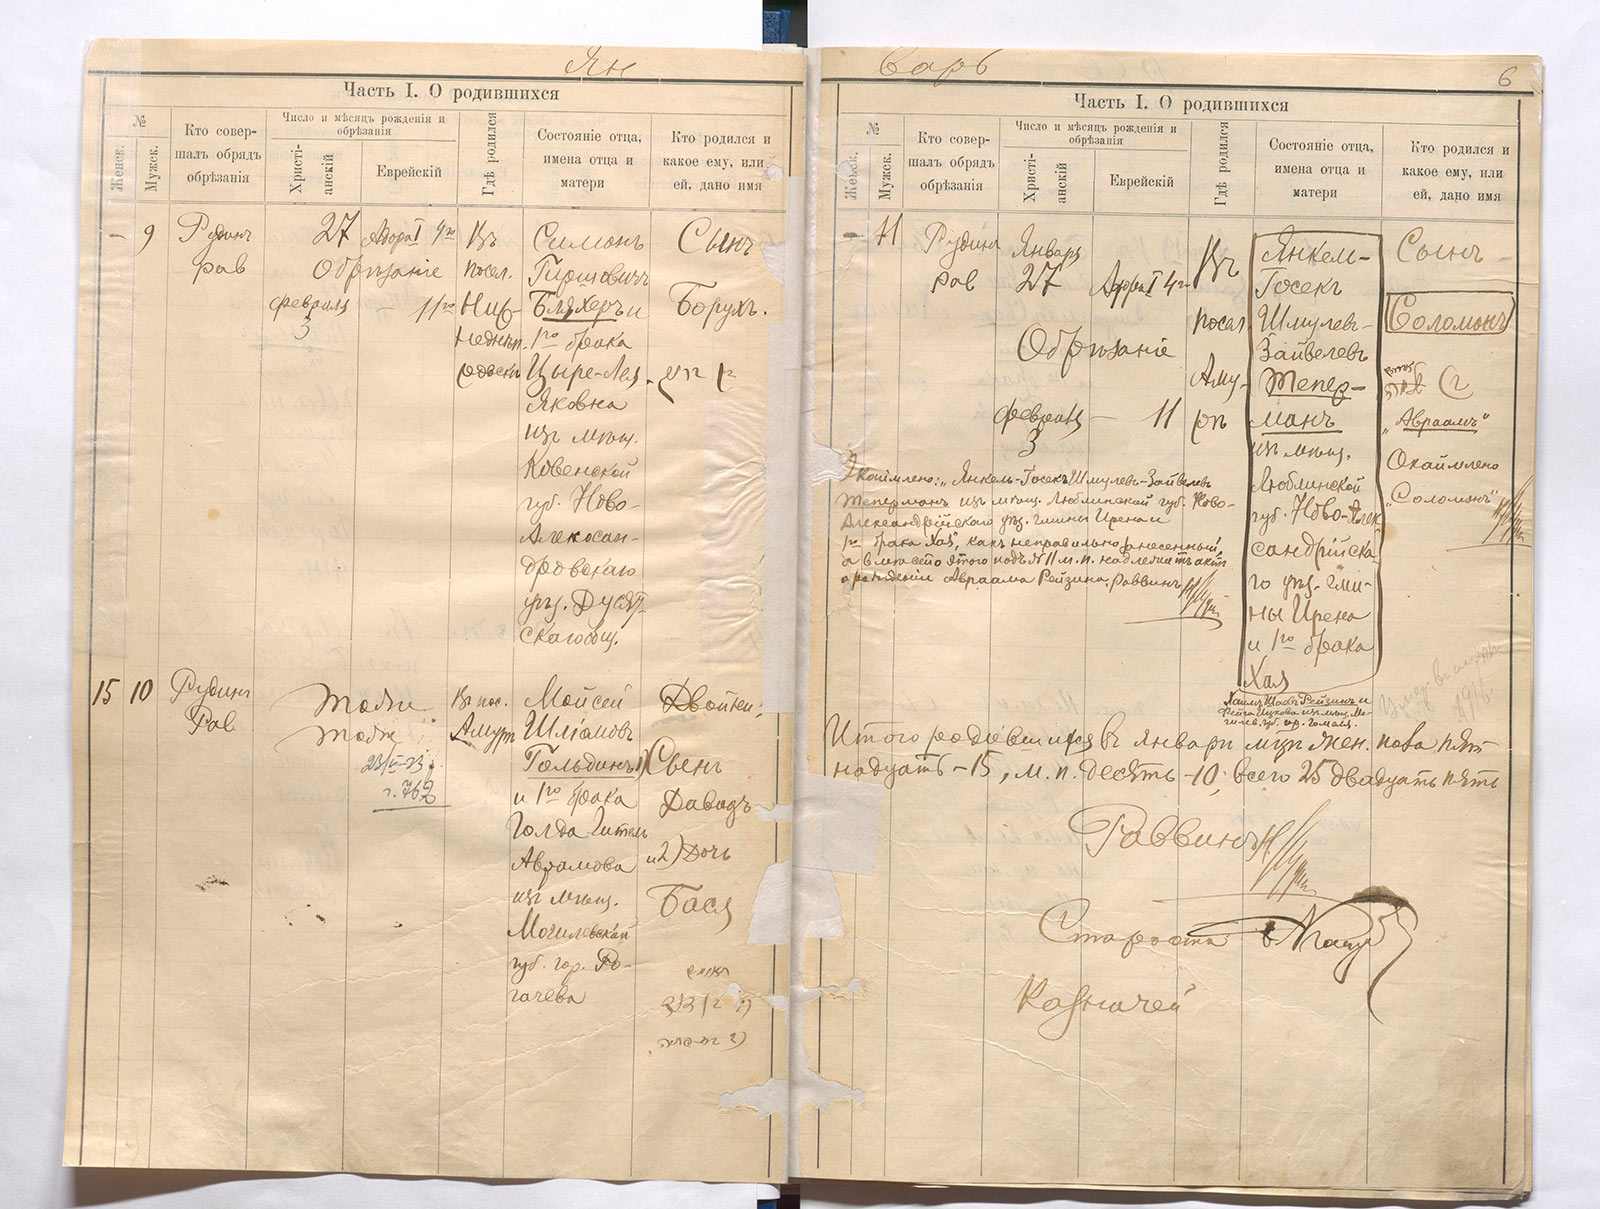 Ян
Часть I. О родившихся
№
Женск.
Мужск.
Кто совер-
шалъ обрядъ
обрѣзанія
Число и мѣсяцъ рожденія и
обрѣзанія
Христі-
анскій
Еврейскій
Гдѣ родился
Состояніе отца,
имена отца и
матери
Кто родился и
какое ему, или
ей, дано имя
9
Рудинъ
рав
27
Обрѣзаніе
февраля
3
Адора I 4го
11го
Въ
посел.
Ниж-
Симонъ
Гиршовичъ
Бляхеръ и
1го брака
Цыре-Лея
Яковна
изъ мѣщ.
Ковенской
губ. Ново-
Алексан-
дровскаго
уѣз. Дусят-
скаго общ.
Сынъ
Борухъ.
15 10
Рудинъ
Рав
Тоже
Тоже
Въ пос.
Амурѣ
Мойсей
Шліомов
Гольдинъ
и 1го брака
Голда-Гитель
Аврамова
изъ мѣщ.
Могилевской
губ. гор. Ро-
гачева
Двойни:
1) Сынъ
Давидъ
и 2) Дочь
Бася
варь
6
Часть I. О родившихся
№
Женск.
Мужск.
Кто совер-
шалъ обрядъ
обрѣзанія
Число и мѣсяцъ рожденія и
обрѣзанія
Христі-
анскій
Еврейскій
Гдѣ родился
Состояніе отца,
имена отца и
матери
Кто родился и
какое ему, или
ей, дано имя
11
Рудинъ
рав
Января
27
Адора I 4го
Обрѣзаніе
февраля
3
11
Въ
посел.
Аму-
рѣ
Янкель-
Іосекъ
Шмулевъ-
Зайвелевъ
Теперь-
манъ
изъ мѣщ.
Люблинской
губ. Ново-Алек
сандрійска
го уѣз. гми-
ны Ирена
и 1го брака
Хая
Сынъ
Соломонъ
"Авраамъ"
Окаймлено
"Соломонъ"
Окаймлено: "Янкель-Іосекъ Шмулевъ-Зайвелевъ
Теперманъ изъ мѣщ. Люблинской губ. Ново-
Александрійскаго уѣз. гмины Ирена и
1го брака Хая", какъ неправильно занесенный,
а вмѣсто этого подъ № 11 м. п. надлежитъ актъ
о рожденіи Авраама Рейзина. Раввинъ
Итого родившихся въ январѣ м-цѣ жен. пола пят-
надцать - 15, м. п. десять - 10; всего 25 двадцать пять
Раввинъ
Староста
Казначей